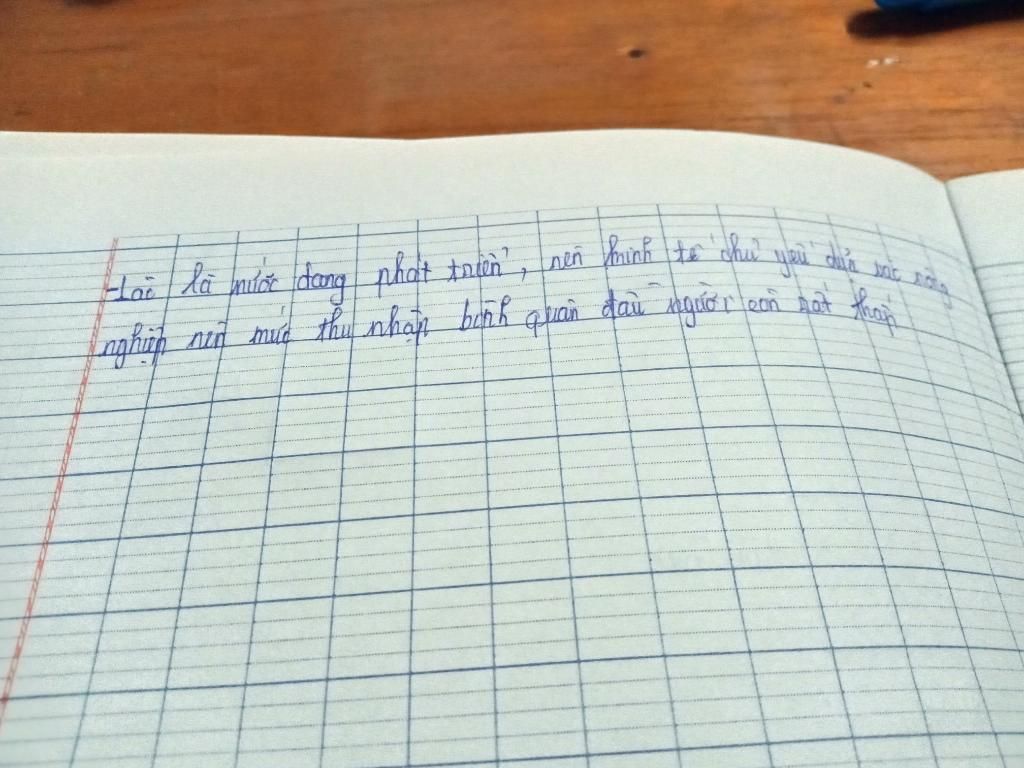 - Lào là nước đang phát triển, nên kinh tế chủ yếu dựa vào nông
nghiệp nên mức thu nhập bình quân đầu người còn rất thấp